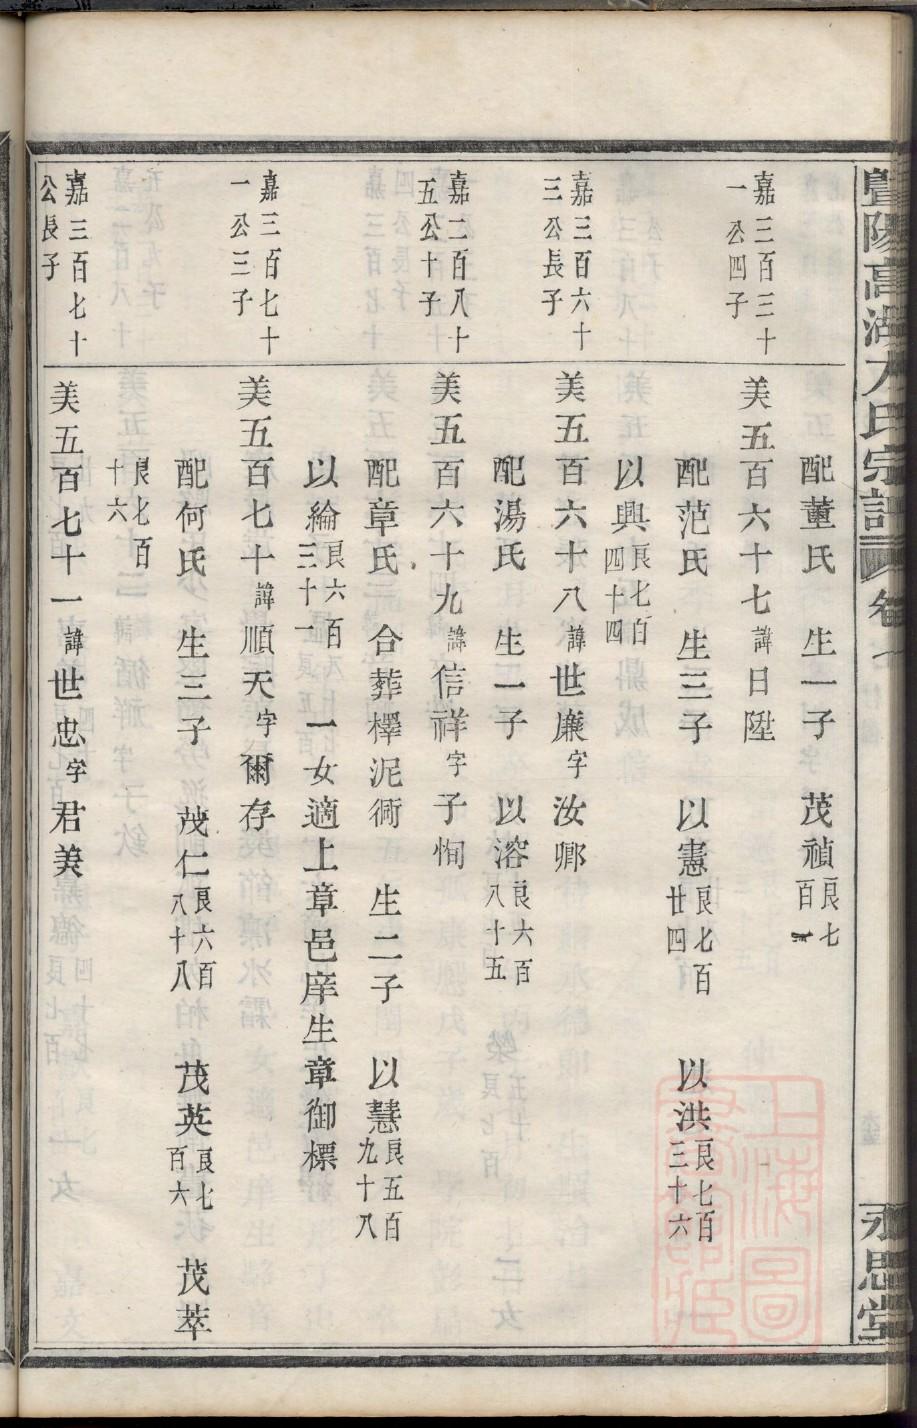 暨陽高湖方氏宗譜 卷 永思堂
配董氏 生一子 茂禎良七百一
嘉三百三十一公四子
美五百六十七諱日陞
配范氏 生三子 以憲良七百廿四 以洪良七百三十六
以興良七百四十四
嘉三百六十三公長子
美五百六十八諱世廉字汝鄉
配湯氏 生一子 以溶良六百八十五
嘉二百八十五公十子
美五百六十九諱信祥字子恂
配章氏 合葬檡泥衕 生二子 以慧良五百九十八
以綸良六百三十一 一女適上章邑庠生章御標
嘉三百七十一公三子
美五百七十諱順天字爾存
配何氏 生三子 茂仁良六百八十八 茂英良七百六 茂萃
良七百十六
嘉三百七十公長子
美五百七十一諱世忠字君美